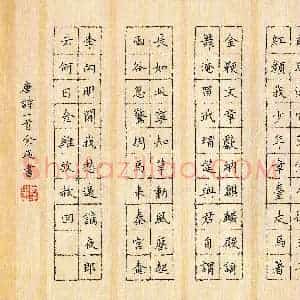 紅顏我少年章臺走馬著
金鞭文章獻納麒麟殿謌
舞淹留玳瑁筵與君自謂
長如此寧知草動風塵起
函谷忽驚胡馬來秦宮桃
李向明開我愁遠謫夜郎
去何日金雞放赦回
唐詩一首 書